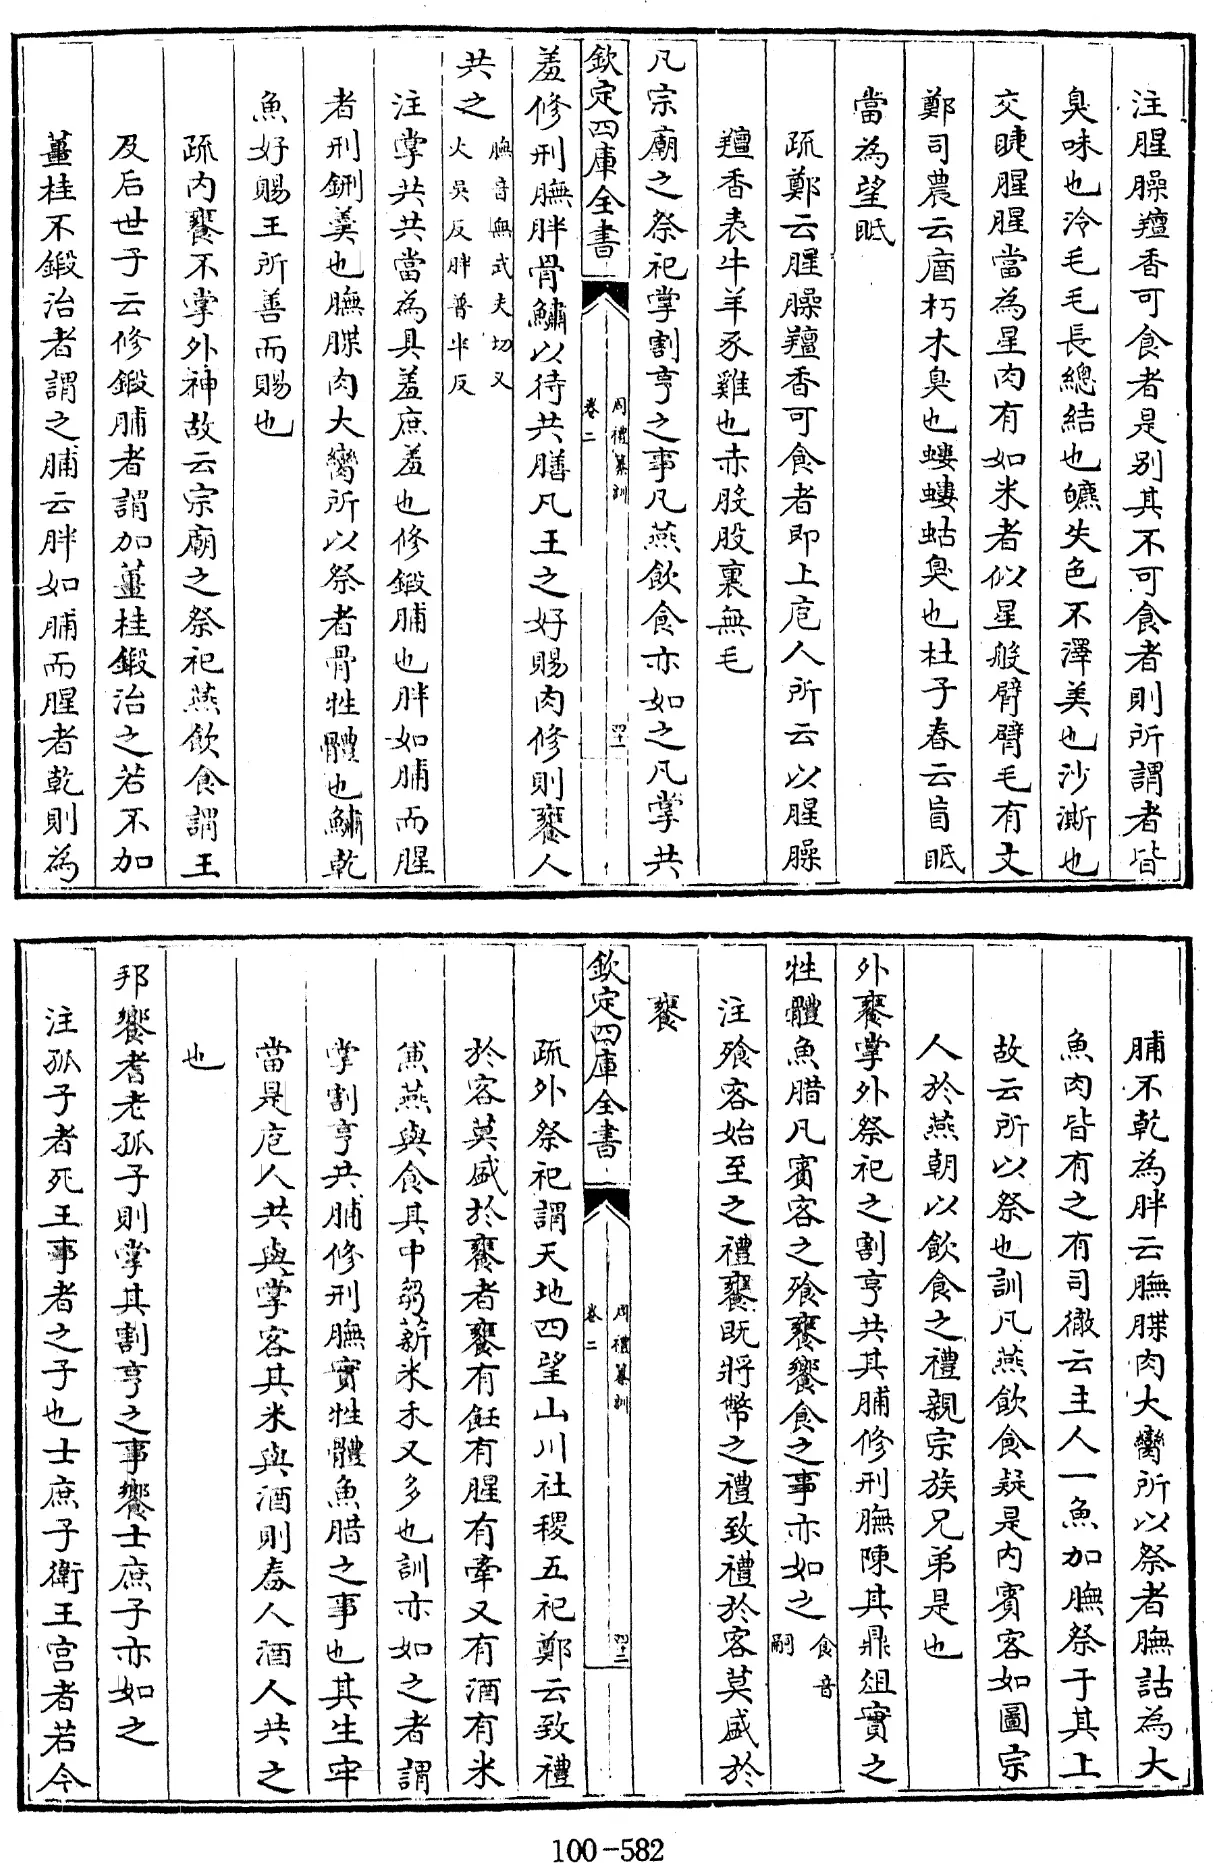 注腥臊羶香可食者是别其不可食者則所謂者皆
臭味也泠毛毛長總結也皫失色不澤美也沙澌也
交睫腥腥當為星肉有如米者似星般臂臂毛有文
鄭司農云庮朽木臭也螻螻蛄臭也杜子春云盲眂
當為望眂
疏鄭云腥臊羶香可食者即上庖人所云以腥臊
羶香表牛羊豕雞也赤股股裏無毛
凡宗廟之祭祀掌割亨之事凡燕飲食亦如之凡掌共
欽定四庫全書
周禮纂訓
卷二
四十二
羞修刑膴胖骨鱐以待共膳凡王之好賜肉修則饔人
共之膴音無式夫切又火吴反胖普半反
注掌共共當為具羞庶羞也修鍛脯也胖如脯而腥
者刑鉶羹也膴䐑肉大臠所以祭者骨牲體也鱐乾
魚好賜王所善而賜也
疏内饔不掌外神故云宗廟之祭祀燕飲食謂王
及后世子云修鍛脯者謂加薑桂鍛治之若不加
薑桂不鍛治者謂之脯云胖如脯而腥者乾則為
脯不乾為胖云膴䐑肉大臠所以祭者膴詁為大
魚肉皆有之有司徹云主人一魚加膴祭于其上
故云所以祭也訓凡燕飲食疑是内賓客如圖宗
人於燕朝以飲食之禮親宗族兄弟是也
外饔掌外祭祀之割亨共其脯修刑膴陳其鼎俎實之
牲體魚腊凡賓客之飧饔饗食之事亦如之食音嗣
注飧客始至之禮饔既將幣之禮致禮於客莫盛於
饔
欽定四庫全書
周禮纂訓
卷二
四十三
疏外祭祀謂天地四望山川社稷五祀鄭云致禮
於客莫盛於饔者饔有飪有腥有牽又有酒有米
兼燕與食其中芻薪米禾又多也訓亦如之者謂
掌割亨共脯修刑膴實牲體魚腊之事也其生牢
當是庖人共與掌客其米與酒則舂人酒人共之
也
邦饗耆老孤子則掌其割亨之事饗士庶子亦如之
注孤子者死王事者之子也士庶子衛王宫者若今
100-582